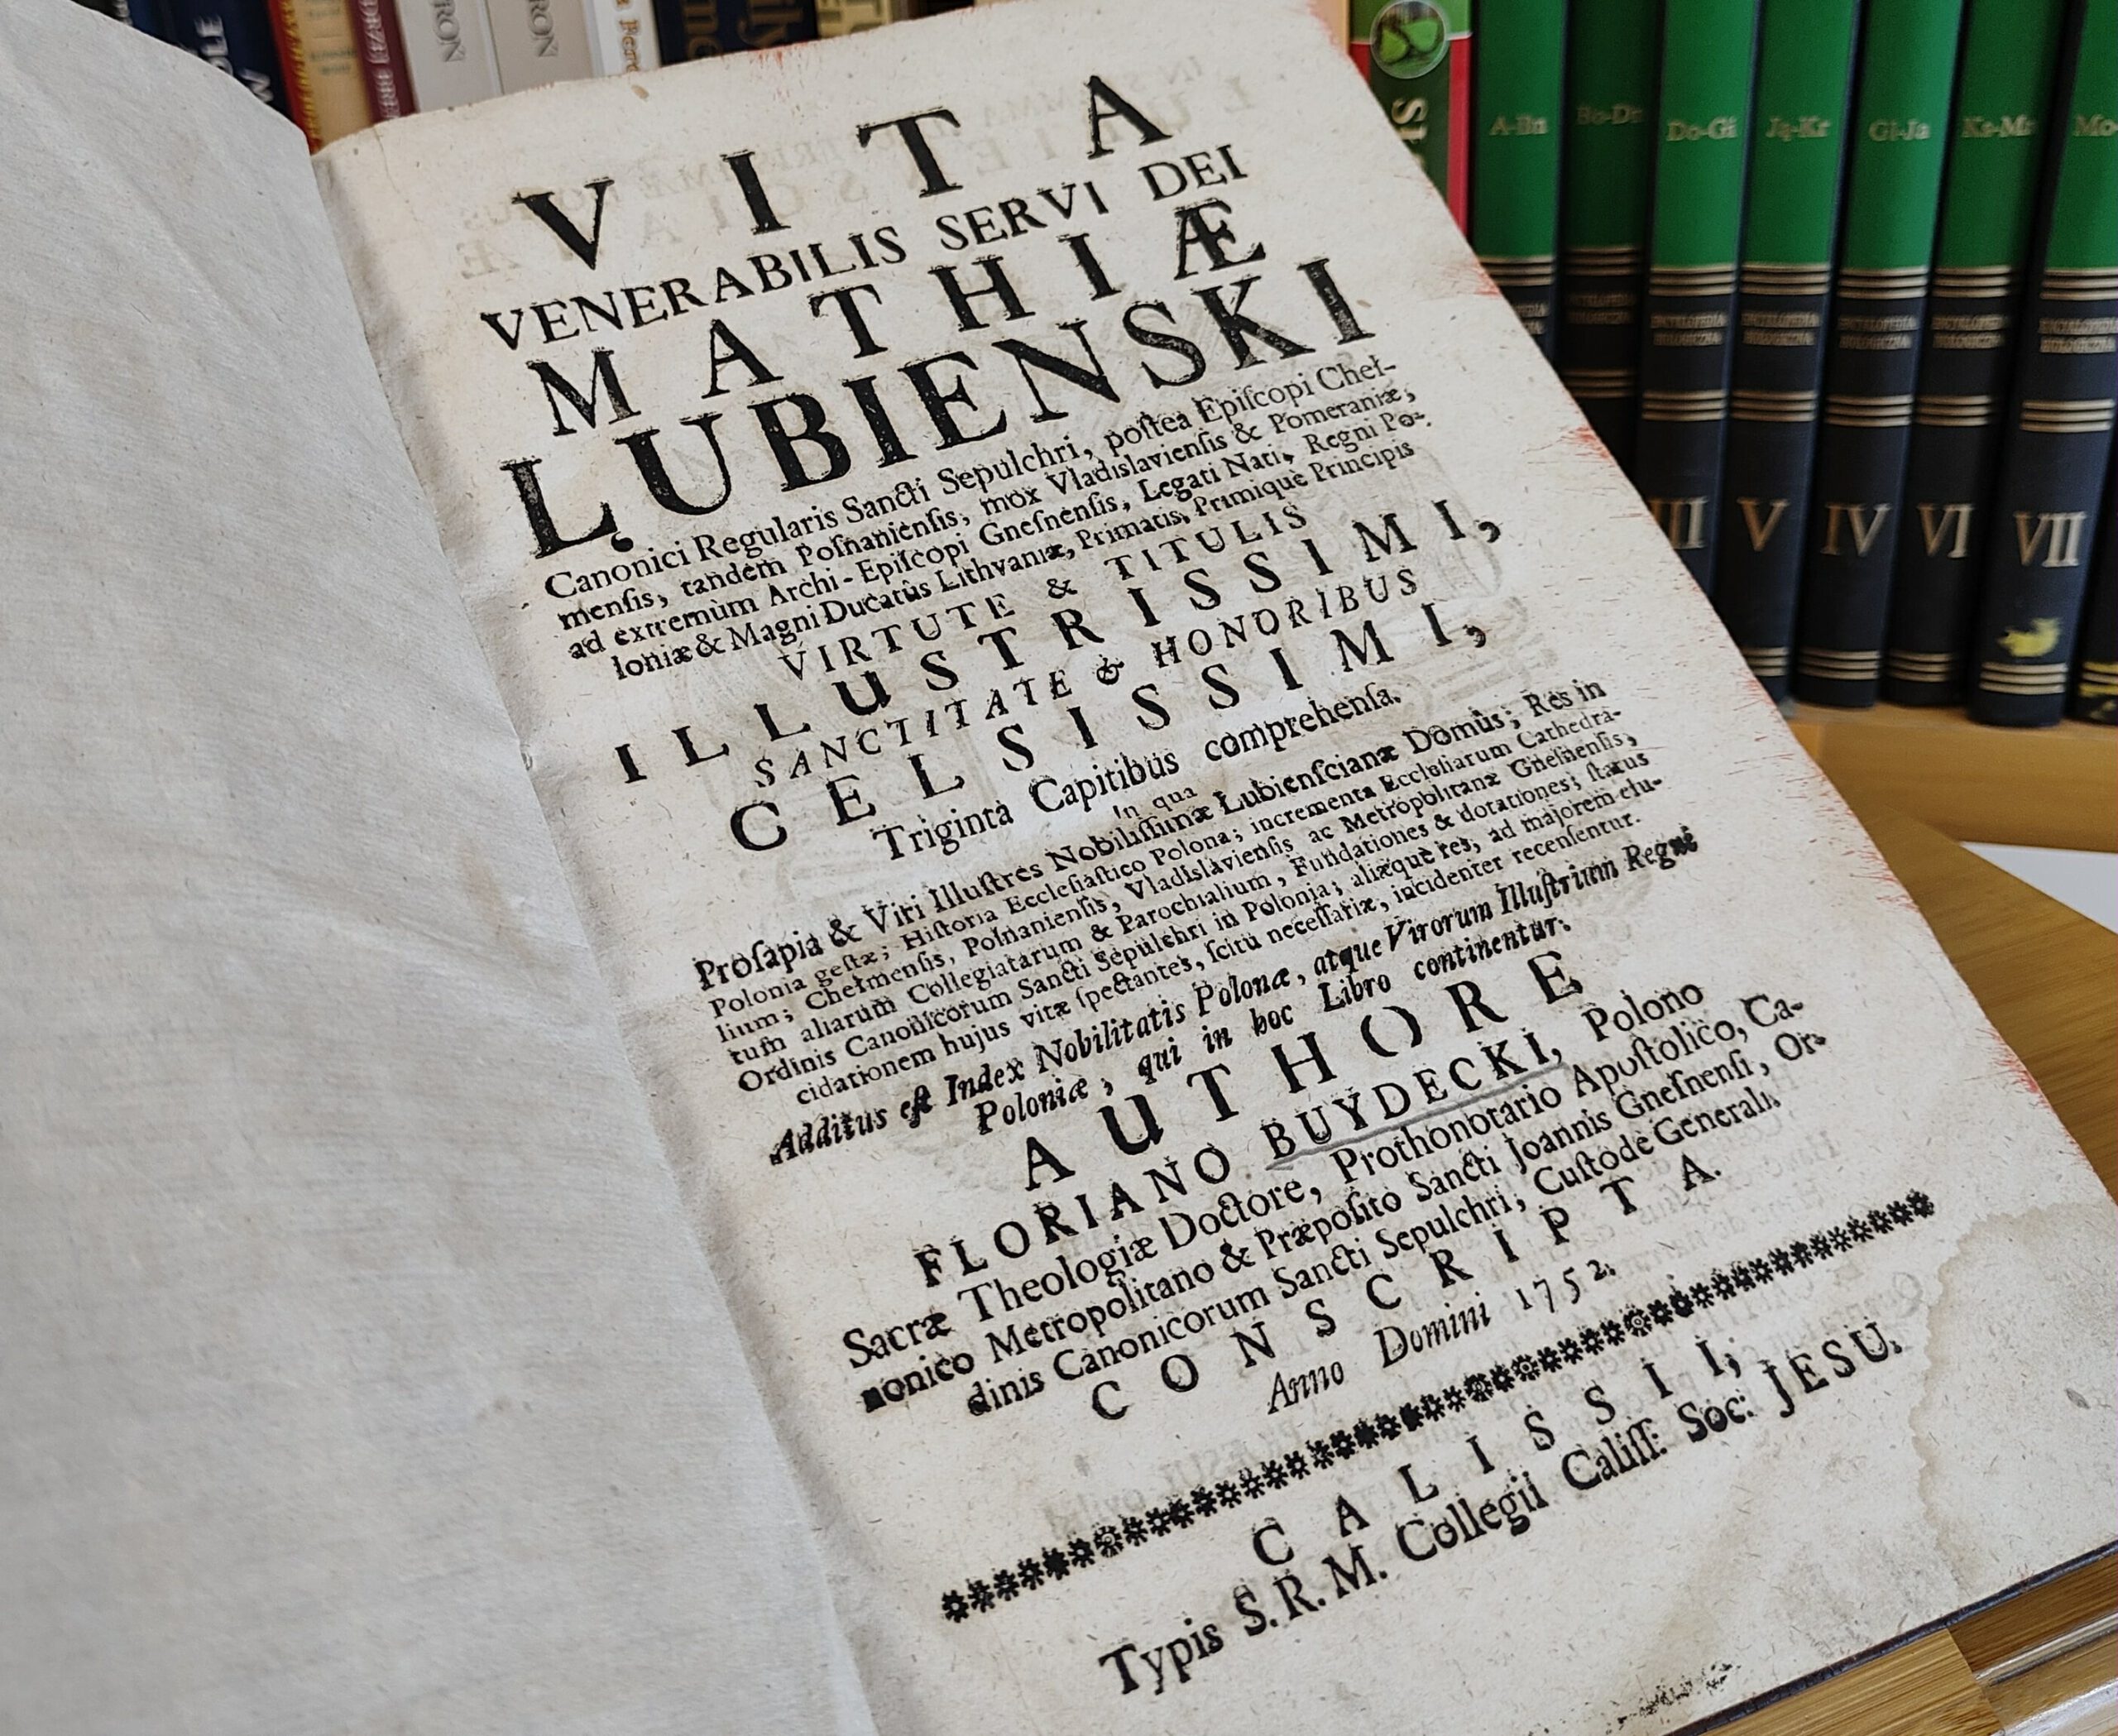 VITA
VENERABILIS SERVI DEI
MATHIÆ
LUBIENSKI
Canonici Regularis Sancti Sepulchri, poſtea Epiſcopi Cheł-
menſis, tandem Poſnanienſis, mox Vladislavienſis & Pomeraniæ;
ad extremùm Archi-Epiſcopi Gneſnenſis, Legati Nati, Regni Po-
loniæ & Magni Ducatûs Lithvaniæ, Primatis, Primiquè Principis
VIRTUTE & TITULIS
ILLUSTRISSIMI,
SANCTITATE & HONORIBUS
CELSISSIMI,
Triginta Capitibus comprehenſa.
In qua
Proſapia & Viri Illuſtres Nobiliſſimæ Lubienſcianæ Domûs; Res in
Polonia geſtæ; Hiſtoria Eccleſiaſtico Polona; incrementa Eccleſiarum Cathedra-
lium; Chełmenſis, Poſnanienſis, Vladislavienſis ac Metropolitanæ Gneſnenſis,
tum aliarum Collegiatarum & Parochialium, Fundationes & dotationes; ſtatus
Ordinis Canonicorum Sancti Sepulchri in Polonia; aliæquè res, ad majorem elu-
cidationem hujus vitæ ſpectantes, ſcitu neceſſariæ, incidenter recenſentur.
Additus eſt Index Nobilitatis Polonæ, atque Virorum Illuſtrium Regni
Poloniæ, qui in hoc Libro continentur.
AUTHORE
FLORIANO BUYDECKI, Polono
Sacræ Theologiæ Doctore, Prothonotario Apuſtolico, Ca-
nonico Metropolitano & Præpoſito Sancti Joannis Gneſnenſi, Or-
dinis Canonicorum Sancti Sepulchri, Cuſtode Generali,
CONSCRIPTA.
Anno Domini 1752.
CALISSII,
Typis S.R.M. Collegii Caliſſ: Soc: JESU.
A-Bn
Bo-Dn
Do-Gi
Ją-Kr
Gi-Ja
Mo
III
V
IV
VI
VII